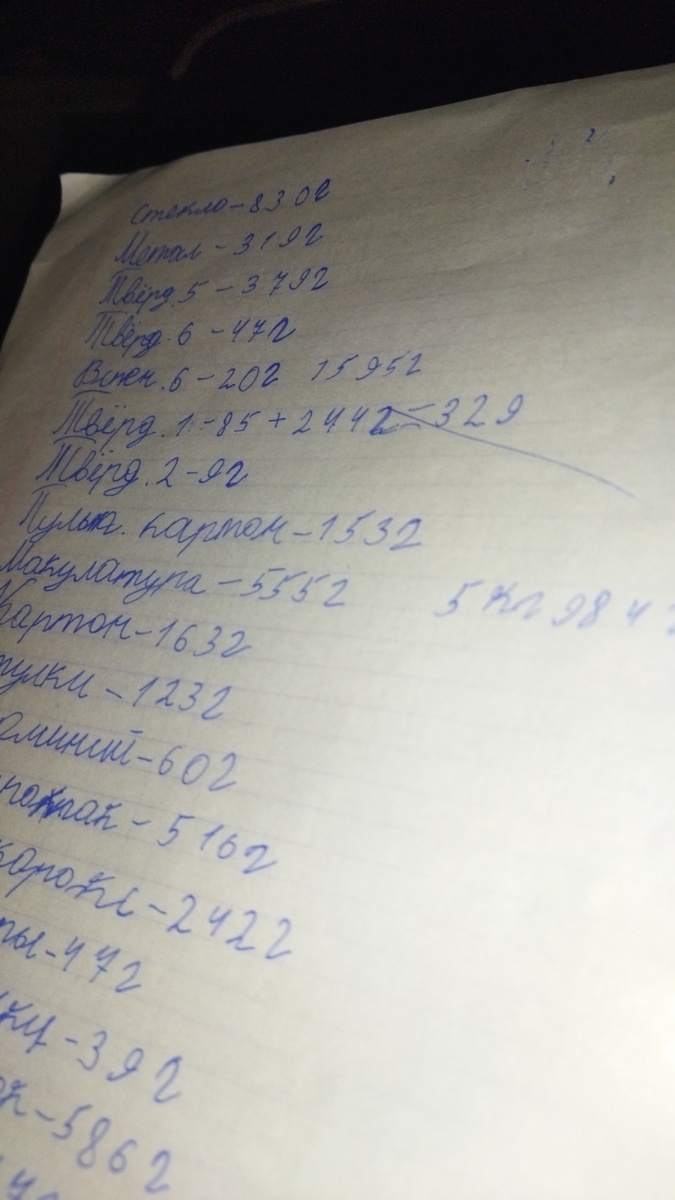 Стекло - 830г
Метал - 319г
Твёрд. 5 - 379г
Твёрд. 6 - 47г
Вспен. 6 - 20г 1595г
Твёрд. 1 - 85 + 244г = 329
Твёрд. 2 - 9г
Пульп. картон - 153г
Макулатура - 555г 5 кг 984
Картон - 163г
тулки - 123г
юминий - 60г
- 516г
- 242г
ты - 47г
- 39г
- 586г